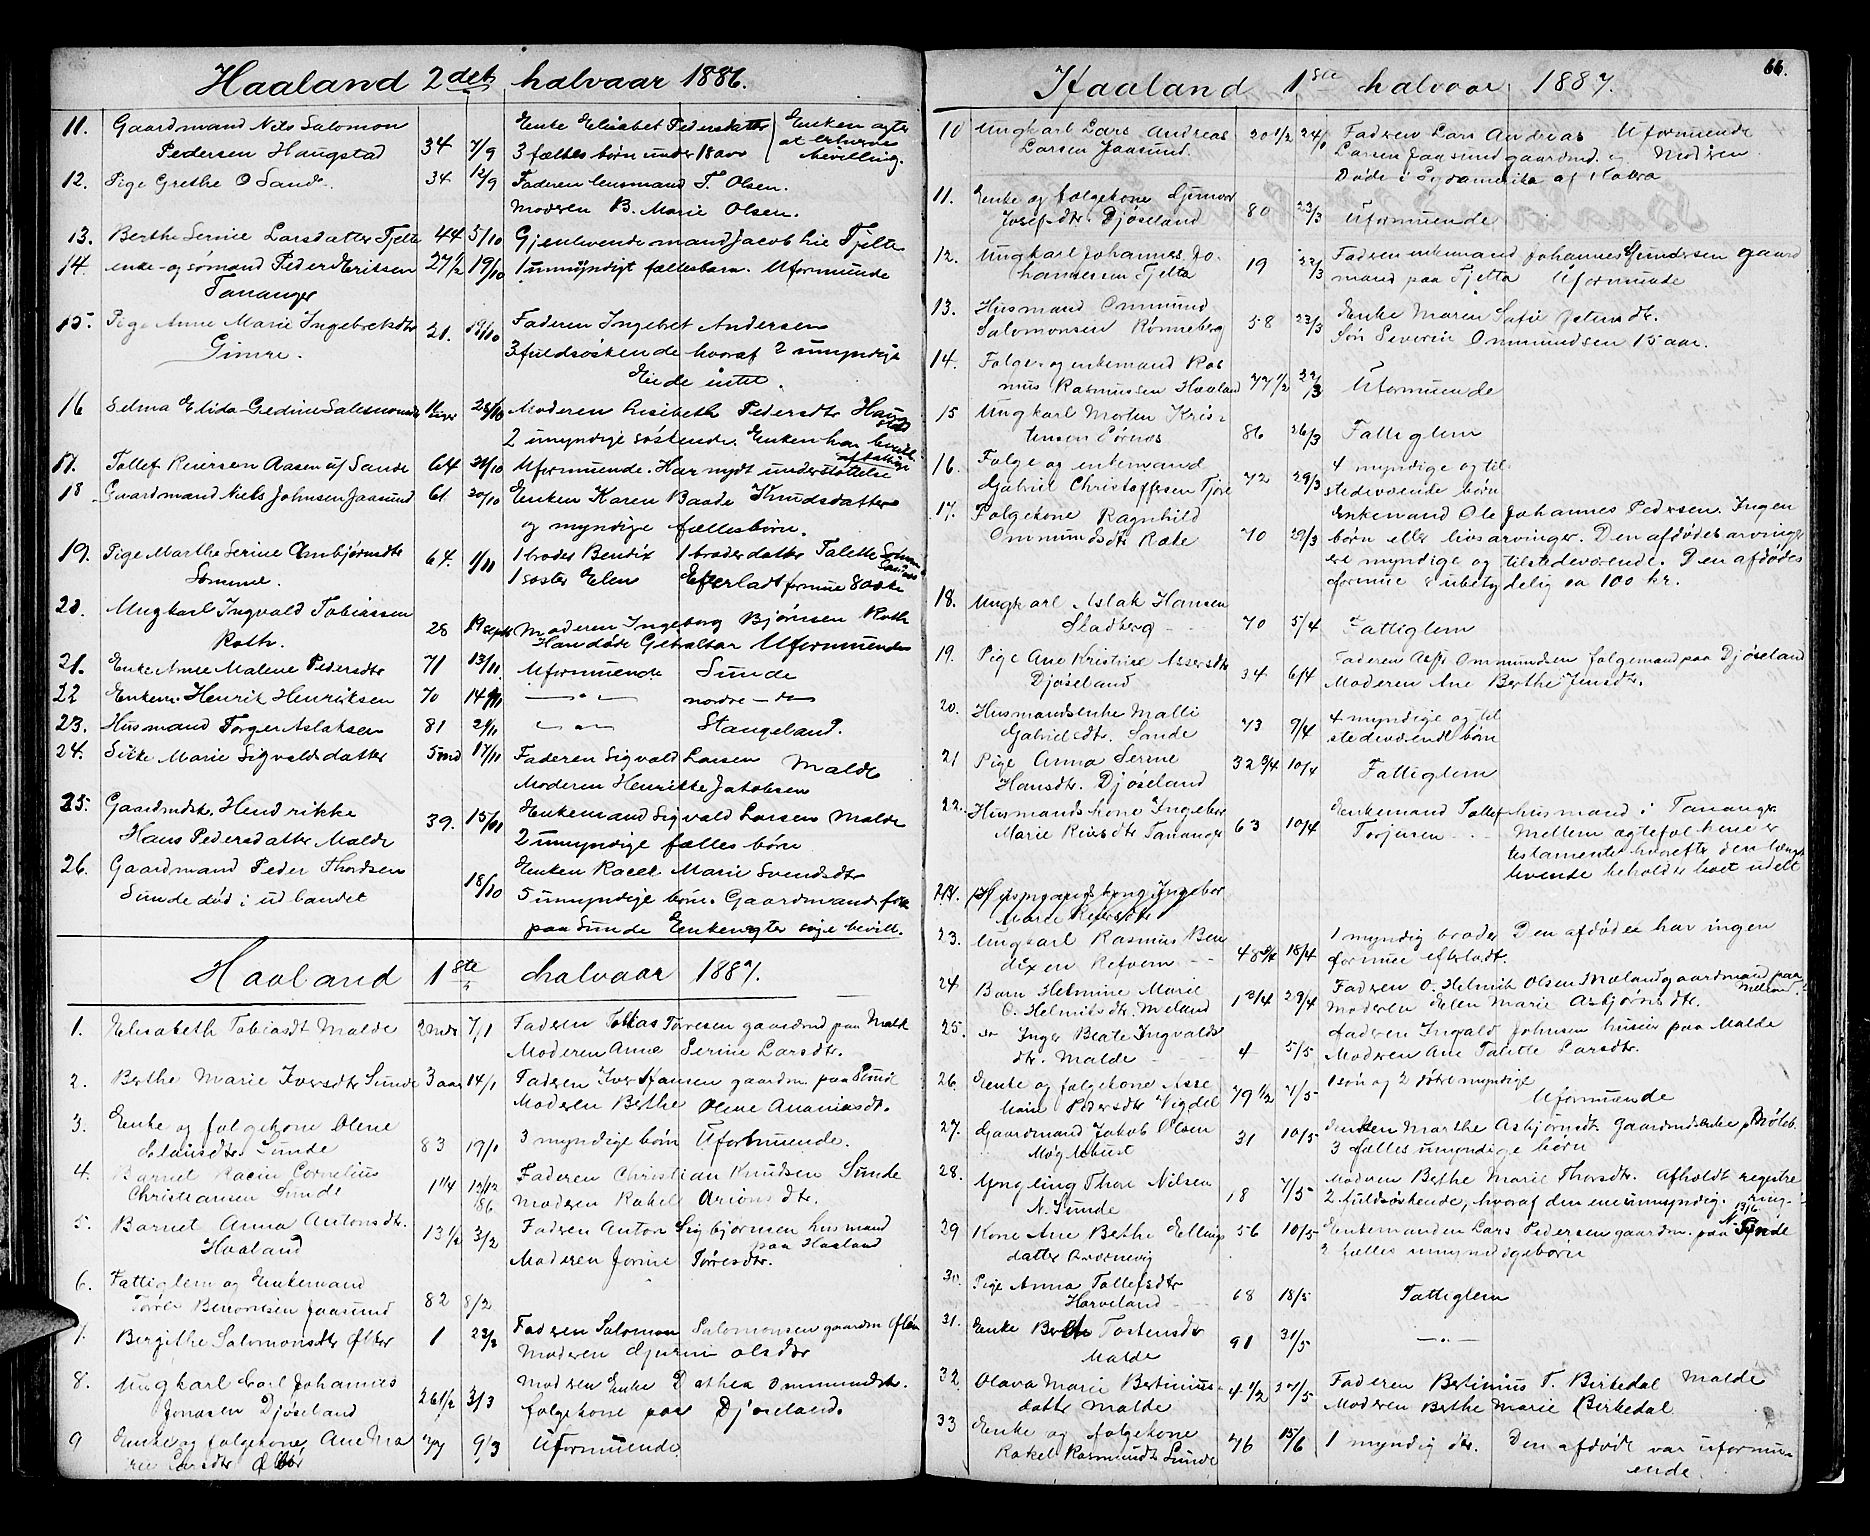 Haaland 2det halvaar 1886.
11. Gaardmand Nils Salomon Pedersen Haugstad 34 7/9 Enke Elisabet Pedersdatter
3 fælles børn under 18 aar (Enken agter at erhverve bevilling.
12. Pige Grethe O Sande. 34 12/9 Faderen Husmand T. Olsen.
Moderen B. Marie Olsen.
13. Berthe Serine Larsdatter Tjelta 44 5/10 Gjenlevende mand Jacob Lie Tjelta
14. enke- og sømand Peder Eriksen 27 1/2 19/10 1 umyndigt fællesbarn. Uformuende
Tananger
15. Pige Anne Marie Ingebretsdtr 21. 19/10 Faderen Ingebret Andersen
Gimre. 3 fuldsøskende hvoraf 2 umyndige
Eiede intet.
16 Selma Elida Gedine Salomonsdtr 28/10 Moderen Lisibeth Pedersdtr Haugstad
2 umyndige søskende. Enken har bevill.
17. Tollef Reiersen Aasen af Sande 64 Uformuende. Har nydt understøttelse
18 Gaardmand Niels Johnsen Jaasund 61. 20/10 Enken Karen Baade Knudsdatter
og myndige fællesbørn.
19. Pige Marthe Serine Asbjørnsdtr 64. 1/11 1 broder Bendix 1 broderdatter Talette
Sømme. 1 søster Elen Efterladt formue 800 kr
20. Ungkarl Ingvald Tobiassen 28 19 septb Moderen Ingeborg Bjørnsen Roth
Roth. Han døde Gibraltar Uformuende
21. Enke Anne Malene Pedersdtr 71 13/11 Uformuende Sunde
22 Enkem. Henrik Henriksen 70 14/11 —„— nordre — do
23. Husmand Torger Aslaksen 81 2/11 —„— Stangeland.
24. Silke Marie Sigvaldsdatter 5 md 17/11 Faderen Sigvald Larsen Malde
Moderen Henrikke Jakobsen
25. Gaardmdsk. Hendrikke 39. 15/11 Enkemand Sigvald Larsen Malde
Hans Pedersdatter Malde 2 umyndige fælles børn
26. Gaardmand Peder Thordsen 18/10 Enken Racel Marie Svendsdtr
Sunde død i udlandet 5 umyndige børn. Gaardmandsfolk
paa Sunde Enken agter søge bevill.
Haaland 1ste halvaar 1887.
1. Elisabeth Tobiasdt Malde 2 mdr 7/1 Faderen Tobias Tørresen gaardmd paa Malde
Moderen Anne Serine Larsdtr.
2. Berthe Marie Iversdtr Sunde 3 aar 14/1 Faderen Iver Hansen gaardm. paa Sunde
Moderen Berthe Olene Ananiasdt.
3. Enke og følgekone Olene 83 19/1 3 myndige børn Uformuende.
Sunde
4. Barnet Racin Cornelius 1 1/4 12/12 86 Faderen Christian Knudsen Sunde
Christiansen Sunde Moderen Rakel
5. Barnet Anna Antonsdtr. 13 1/2 3/2 Faderen Anton Sigbjørnsen husmand
Haaland paa Haaland
Moderen Jorine Tørresdtr.
6. Fattiglem og Enkemand 82 8/2
Jaasund
7. Bergithe SalomonsdtrØlber 1 Faderen Salomon Salomonsen gaardm Ølber
Moderen Gjurine Olsdtr
8. Ungkarl Carl Johannes 26 1/2 3/3 Moderen Enke Dorthea Ommundsdtr.
Jonasen Djøseland følgekone paa Djøseland.
9 Enke og følgekone Ane Ma 77 9/3 Uformuende
ren Larsdtr Ølbør
Haaland 1ste halvaar 1887. 66.
10 Ungkarl Lars Andreas 20 1/2 Faderen Lars Andreas Uformuende
Larsen Jaasund. Larsen Jaasund gaardmd. og Moderen
Døde i Sydamerika af Kolera
11. Enke og følgekone Gunvor 80 23/3 Uformuende
Josefsdtr. Djøseland
12. Ungkarl Johannes Jo- 19 22/3 Faderen enkemand Johannes Gundersen gaard
hannessen Tjelta mand paa Tjelta Uformuende
13. Husmand Ommund 58 23/3 Enke Maren Sofie Østensdtr.
Salomonsen Rønneberg Søn Severin Ommundsen 15 aar.
14. Følge- og enkemand Ras 77 1/2 22/3 Uformuende
mus Rasmussen Haaland
15 Ungkarl Morten Kris- 86 26/3 Fattiglem
tensen Sørnes
16. Følge og enkemand 72 29/3 4 myndige og til
Gabriel Christoffersen Tjora stedeværende børn
17. Følgekone Ragnhild 70 29/3 Enkemand Ole Johannes Pedersen. Ingen
Ommundsdtr Røke børn eller livsarvinger. Den afdødes arvinger
ere myndige og tilstedeværende. Den afdødes
formue ubetydelig ca 100 kr.
18. Ungkarl Aslak Hansen 70 5/4 Fattiglem
Stadberg
19. Pige Ane Kristine Assersdtr 34 6/4 Faderen Ommundsen følgemand paa Djøseland
Djøseland Moderen Ane Berthe Jensdtr.
20. Husmandsenke Malli 73 9/4 4 myndige og til
Gabrielsdtr. Sande stedeværende børn
21 Pige Anna Serine 32 3/4 10/4 Fattiglem
Hansdtr. Djøseland
22. Husmandskone Ingebor 63 10/4 Enkemand Tollef husmand i Tananger
Marie Reiersdtr Tananger Torjusen Mellem ægtefolkene er
testamente hvorefter den længst
levende beholder boet udelt
Husmandskone Ingebor
Marie Reiersdtr
23. Ungkarl Rasmus Ben 18/4 1 myndig broder Den afdøde har ingen
dixen Refvem formue efterladt.
24. Barn Helmine Marie 1 3/4 29/4 Faderen O. Helmik Olsen Meland gaardmand paa
O. Helmiksdtr. Meland Moderen Helen Marie Asbjørnsdtr. Meland.
25. do Inger Beate Ingvalds 4 5/5 Faderen Ingvald Johnsen husm paa Malde
dtr. Malde Moderen Ane Talette Larsdtr.
26. Enke og følgekone Asse 79 1/2 7/5 1 søn og 2 døtre myndige
Marie Pedersdtr Vigdel Uformuende
27. Gaardmand Jakob Olsen 31 10/5 Enken Marthe Asbjørnsdt. Gaardmdsenke
Møglebust 3 fælles umyndige børn
28. Yngling Thore Nilsen 18 7/5 Moderen Berthe Marie Thorsdtr. Afholdt registre
N. Sunde 2 fuldsøskende, hvoraf den ene umyndig. ring 13/6.
29 Kone Ane Berthe Ellings 56 10/5 Enkemanden Lars Pedersen gaardm. paa N. Sunde
datter 2 fælles umyndige børn
30. Pige Anna Tollefsdtr 68 18/5 Fattiglem
Harveland
31. Enke Berthe Tostensdtr 91 31/5 —„—
Malde
32. Olava Marie Bertinius- 4 1/2 27/5 Faderen Bertinius T. Birkedal Malde
datter Malde Moderen Berthe Marie Birkedal
33 Enke og følgekone 76 15/6 1 myndig dtr. Den afdøde var uformu
Rakel Rasmusdtr Sunde ende.